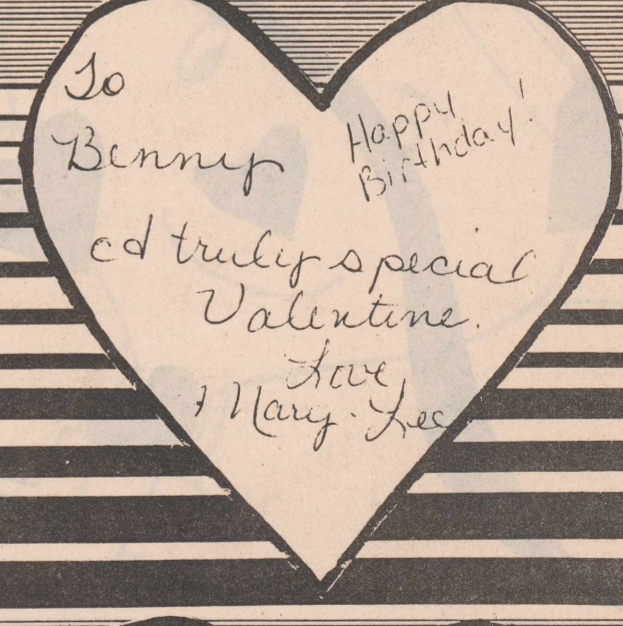 To
Benny
Happy
Birthday!
a truly special
Valentine.
Love
Mary-Lee